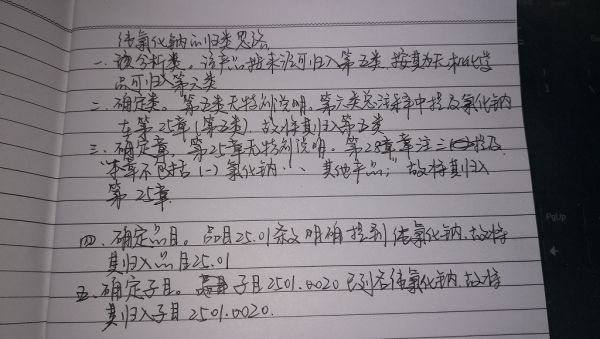 纯氯化钠的归类思路
一、设分析类。该产品按来源可归入第五类,按其为无机化学
品可归入第六类
二、确定类。第五类无特别说明,第六类总注释中提及氯化钠
在第25章(第五类),故将其归入第五类
三、确定章。第25章无特别说明。第28章章注三提及
“本章不包括(一)氯化钠… 其他产品;”故将其归入
第25章
四、确定品目。品目25.01条文明确提到纯氯化钠,故将
其归入品目25.01
五、确定子目。子目2501.0020已列名纯氯化钠,故将
其归入子目2501.0020.
PgUp